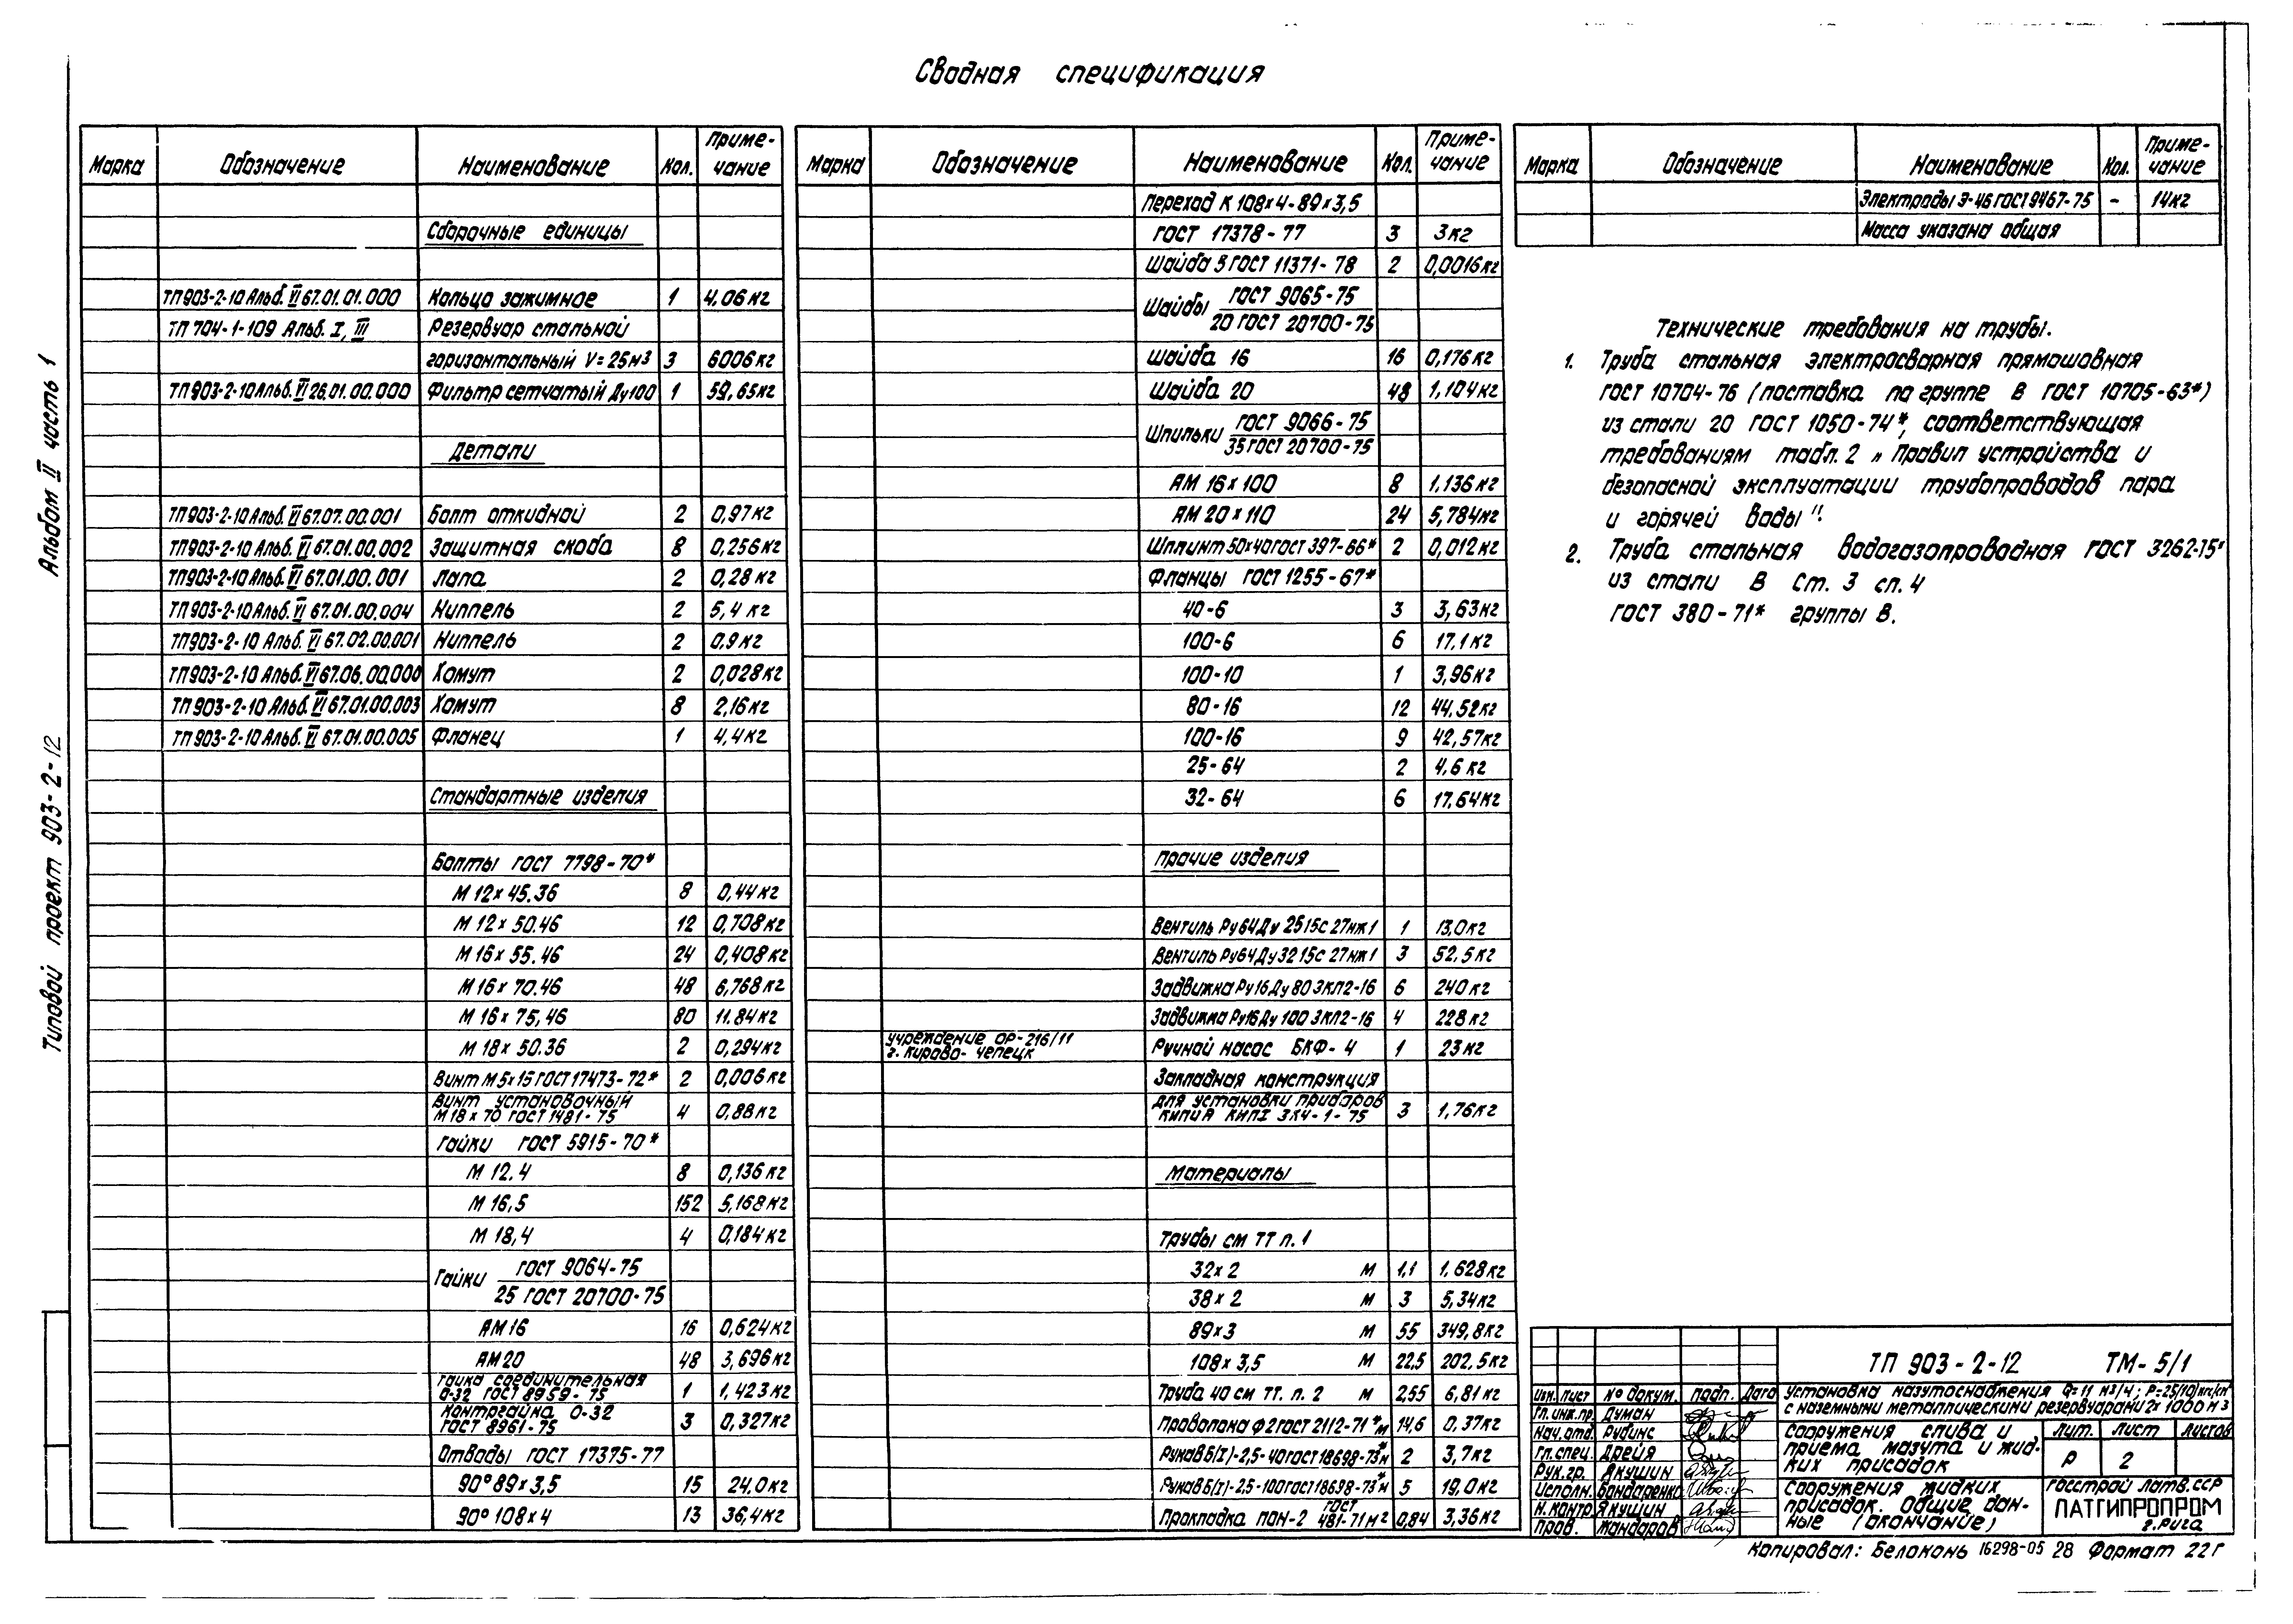 Сводная спецификация
Альбом II часть 1
Типовой проект 903-2-12
Марка Обозначение Наименование Кол. Примечание
Сборочные единицы
ТП903-2-10 Альб. VI 67.01.01.000 Кольцо зажимное 1 4,06кг
ТП 704-1-109 Альб. I, III Резервуар стальной
горизонтальный V=25м3 3 6006кг
ТП903-2-10 Альб. VI 26.01.00.000 Фильтр сетчатый Ду100 1 59,65кг
Детали
ТП903-2-10 Альб. VI 67.07.00.001 Болт откидной 2 0,97кг
ТП903-2-10 Альб. VI 67.01.00.002 Защитная скоба 8 0,256кг
ТП903-2-10 Альб. VI 67.01.00.001 Лапа 2 0,28кг
ТП903-2-10 Альб. VI 67.01.00.004 Ниппель 2 5,4 кг
ТП903-2-10 Альб. VI 67.02.00.001 Ниппель 2 0,9кг
ТП903-2-10 Альб. VI 67.06.00.000 Хомут 2 0,028кг
ТП903-2-10 Альб. VI 67.01.00.003 Хомут 8 2,16кг
ТП903-2-10 Альб. VI 67.01.00.005 Фланец 1 4,4кг
Стандартные изделия
Болты ГОСТ 7798-70*
М 12х45.36 8 0,44кг
М 12х50.46 12 0,708кг
М 16х55.46 24 0,408кг
М 16х70.46 48 6,768кг
М 16х75,46 80 11.84кг
М 18х50.36 2 0,294кг
Винт М5х15 ГОСТ 17473-72* 2 0,006кг
Винт установочный
М18х70 ГОСТ 1481-75 4 0,88кг
Гайки ГОСТ 5915-70*
М 12.4 8 0,136кг
М 16,5 152 5,168кг
М 18,4 4 0,184кг
Гайки ГОСТ 9064-75
25 ГОСТ 20700-75
АМ16 16 0,624кг
АМ20 48 3,696кг
Гайка соединительная
0-32 ГОСТ 8959-75 1 1,423кг
Контргайка 0-32
ГОСТ 8961-75 3 0,327кг
Отводы ГОСТ 17375-77
90°89х3,5 15 24,0кг
90°108х4 13 36,4кг
Марка Обозначение Наименование Кол. Примечание
Переход К 108х4-89х3,5
ГОСТ 17378-77 3 3кг
Шайба 5 ГОСТ 11371-78 2 0,0016кг
Шайбы ГОСТ 9065-75
20 ГОСТ 20700-75
Шайба 16 16 0,176кг
Шайба 20 48 1,104кг
Шпильки ГОСТ 9066-75
35 ГОСТ 20700-75
АМ 16х100 8 1,136кг
АМ 20х110 24 5,784кг
Шплинт 50х40 ГОСТ 397-66* 2 0,012кг
Фланцы ГОСТ 1255-67*
40-6 3 3,63кг
100-6 6 17,1кг
100-10 1 3,96кг
80-16 12 44,52кг
100-16 9 42,57кг
25-64 2 4,6кг
32-64 6 17,64кг
Прочие изделия
Вентиль Ру64Ду 25 15с 27нж1 1 13,0кг
Вентиль Ру64Ду32 15с 27нж1 3 52,5кг
Задвижка Ру16Ду80 ЗКЛ2-16 6 240кг
Задвижка Ру16Ду100 ЗКЛ2-16 4 228кг
учреждение ОР-216/11
г. Кирово-Чепецк Ручной насос БКФ-4 1 23кг
Закладная конструкция
для установки приборов
КИПиА КИПI ЗК4-1-75 3 1,76кг
Материалы
Трубы см ТТ п. 1
32х2 м 1,1 1,628кг
38х2 м 3 5,34кг
89х3 м 55 349,8кг
108х3,5 м 22,5 202,5кг
Труба 40 см ТТ. п. 2 м 2,55 6,81кг
Проволока Ф2 ГОСТ 2112-71* м 14,6 0,37кг
Рукав Б(I)-2,5-40 ГОСТ 18698-73* м 2 3,7кг
Рукав Б(I)-2,5-100 ГОСТ 18698-73* м 5 19,0кг
Прокладка ПОН-2 ГОСТ 481-71 м2 0,84 3,36кг
Марка Обозначение Наименование Кол. Примечание
Электроды Э-46 ГОСТ 9467-75 - 14кг
Масса указана общая
Технические требования на трубы.
1. Труба стальная электросварная прямошовная
ГОСТ 10704-76 (поставка по группе В ГОСТ 10705-63*)
из стали 20 ГОСТ 1050-74*, соответствующая
требованиям табл. 2 „Правил устройства и
безопасной эксплуатации трубопроводов пара
и горячей воды".
2. Труба стальная водогазопроводная ГОСТ 3262-75*
из стали В Ст. 3 сп. 4
ГОСТ 380-71* группы В.
ТП 903-2-12 ТМ-5/1
Изм. Лист № докум. Подп. Дата
Установка мазутоснабжения Q=11 м3/ч; Р=25(10) кгс/см2
с наземными металлическими резервуарами 2х1000 м3
Гл. инж. пр. Думан
Нач. отд. Рудинс
Гл. спец. Дрейя
Рук. гр. Якушин
Исполн. Бондаренко
Н. контр. Якушин
Пров. Жандаров
Сооружения слива и
приема мазута и жид-
ких присадок
Лит. Лист Листов
Р 2
Сооружения жидких
присадок. Общие дан-
ные (окончание)
Госстрой Латв. ССР
ЛАТГИПРОПРОМ
г. Рига
Копировал: Белоконь 16298-05 28 Формат 22Г